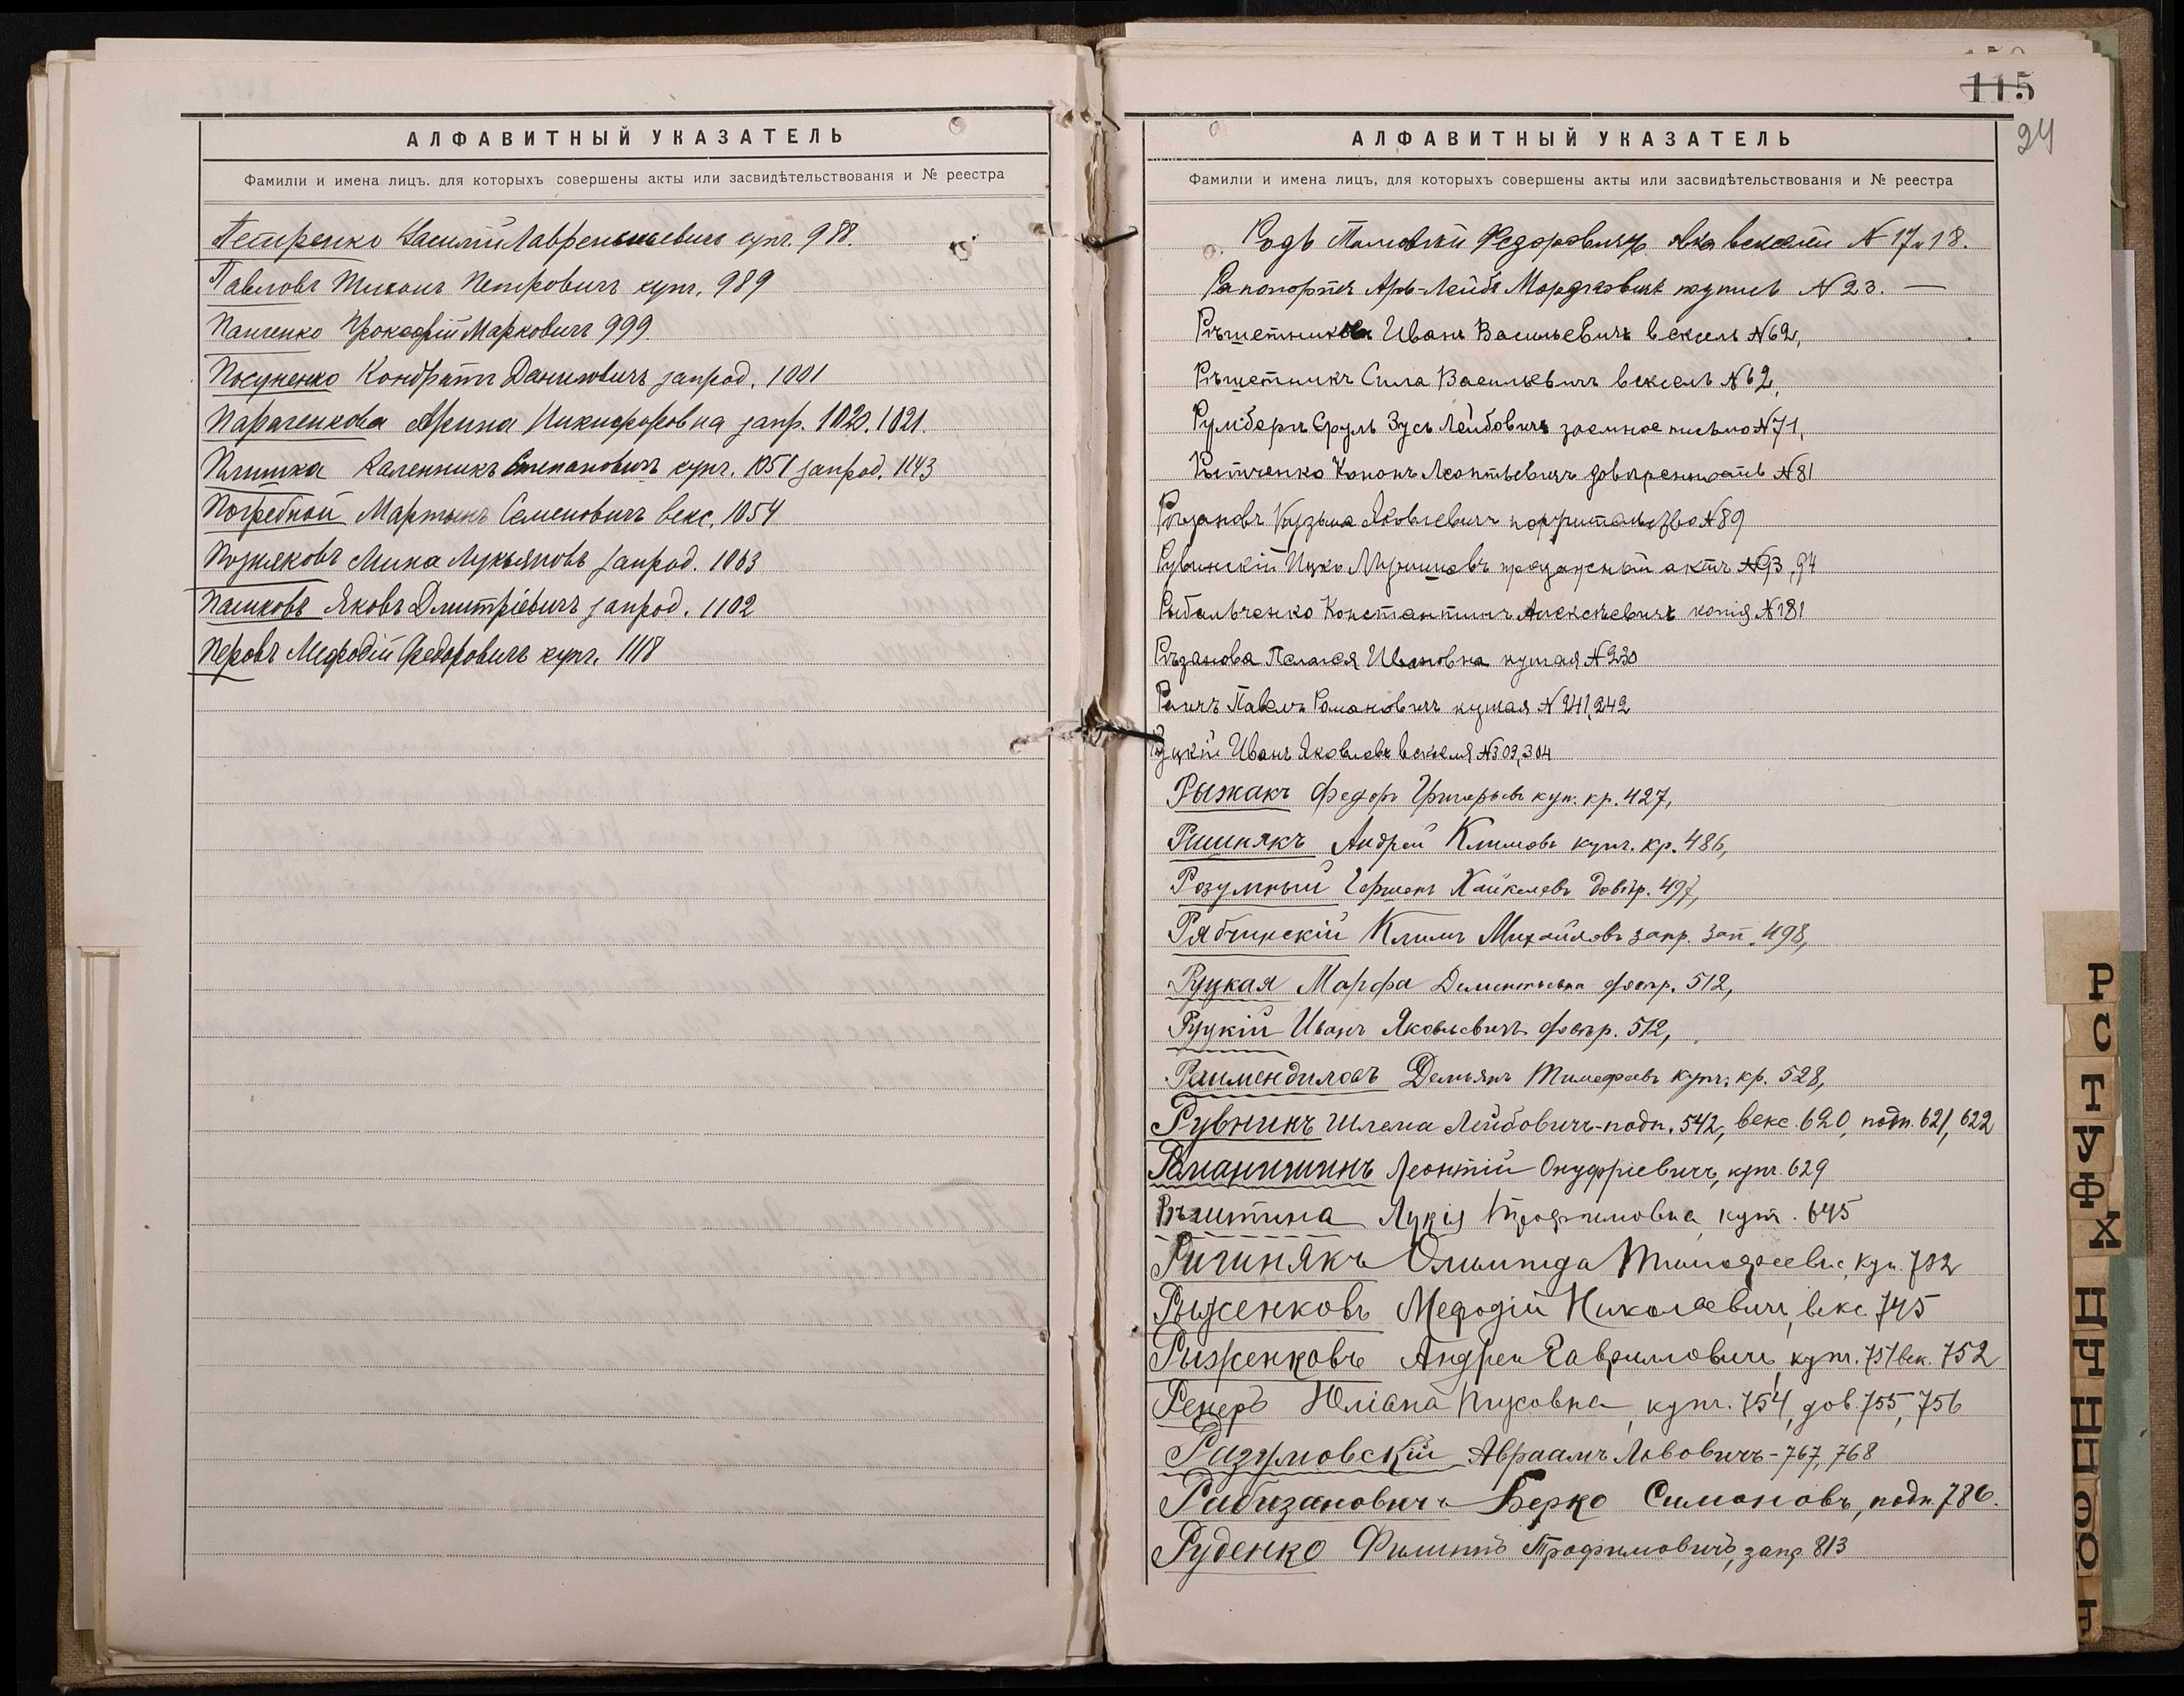 АЛФАВИТНЫЙ УКАЗАТЕЛЬ
Фамиліи и имена лицъ, для которыхъ совершены акты или засвидѣтельствованія и № реестра
Петренко Василій Лаврентьевичъ купч. 988.
Павловъ Тихонъ Петровичъ купч. 989
Панченко Прокофій Марковичъ 999.
Посуненко Кондратъ Даниловичъ запрод. 1001
Параченкова Арина Никифоровна запр. 1020. 1021.
Каленникъ Степановичъ купч. 1051 запрод. 1143
Погребной Мартынъ Семеновичъ векс. 1054
Позняковъ Мина Лукьяновъ запрод. 1063
Пашковъ Яковъ Дмитріевичъ запрод. 1102
Перовъ Мефодій Федоровичъ купч. 1118
115
24
АЛФАВИТНЫЙ УКАЗАТЕЛЬ
Фамиліи и имена лицъ, для которыхъ совершены акты или засвидѣтельствованія и № реестра
Федоровичъ два векселя № 17 и 18.
Рапопортъ Арь-Лейбъ Мордковичъ подпись № 23. —
Рѣшетниковъ Иванъ Васильевичъ вексель № 62,
Рѣшетникъ Сила Васильевичъ вексель № 62,
Сруль Зусь Лейбовичъ заемное письмо № 71,
Кононъ Леонтьевичъ довѣренность № 81
Кузьма Яковлевичъ № 89
Рувинскій Ицко запродажный актъ № 93, 94
Рыбальченко Константинъ Алексѣевичъ копія № 181
Рѣзанова Пелагея Ивановна купчая № 230
Павелъ Романовичъ купчая № 241, 242
Руцкій Иванъ Яковлевъ векселя № 303, 304
Рыжакъ Федоръ Григорьевъ куп. кр. 427,
Андрей Климовъ купч. кр. 486,
Розумный Гершонъ Хайкелевъ довѣр. 497,
Рябчинскій Климъ Михайловъ запр. зап. 498,
Руцкая Марфа Дементьевна довѣр. 512,
Руцкій Иванъ Яковлевичъ довѣр. 512,
Демьянъ Тимофеевъ купч. кр. 528,
Рувникъ Шлема Лейбовичъ-подп. 542, векс. 620, подп. 621, 622
Романишинъ Леонтій Онуфріевичъ, купч. 629
Лукія Трофимовна, купч. 645
Олимпида Тимофеевна, куп. 732
Рыженковъ Мефодій Николаевичъ, векс. 745
Рыженковъ Андрей Гавриловичъ, купч. 751 век. 752
Юліана купч. 754, дов. 755, 756
Разумовскій Авраамъ Львовичъ - 767, 768
Рабизановичъ Берко Симоновъ, подп. 786.
Руденко Филиппъ Трофимовичъ, запр 813
Р
С
Т
У
Ф
Х